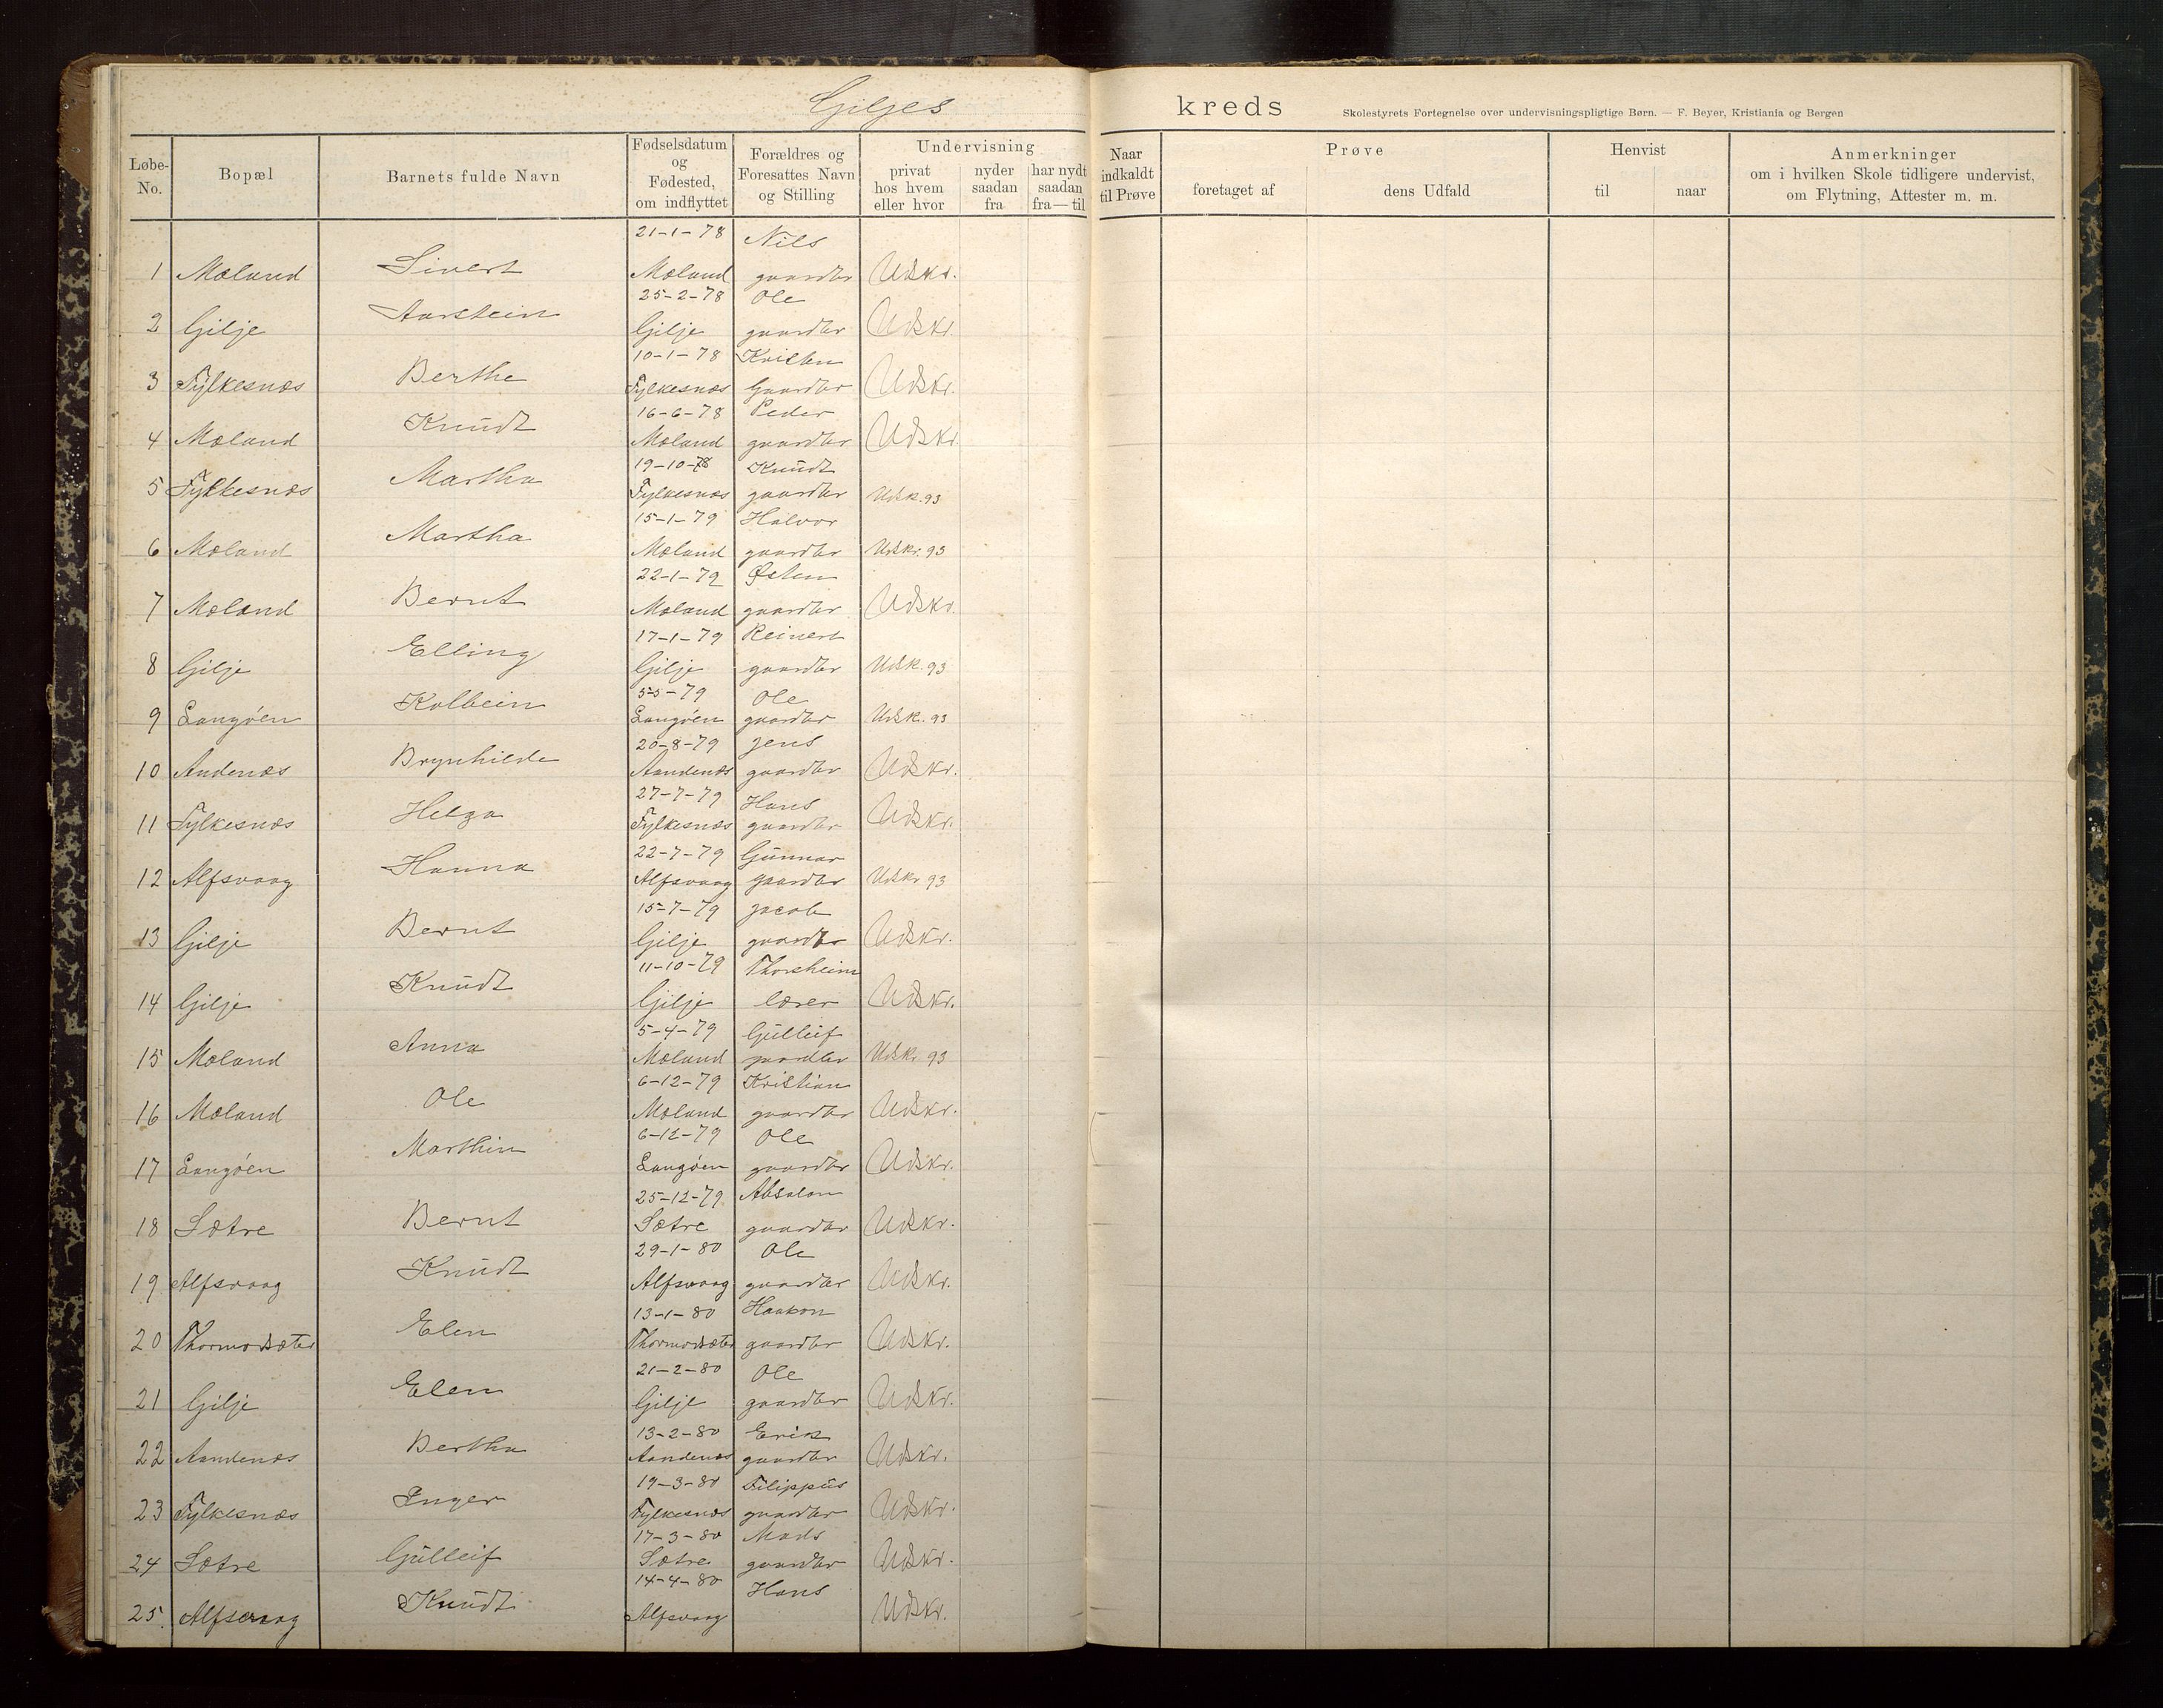 Giljes kreds Skolestyrets Fortegnelse over undervisningspligtige Børn. — F. Beyer, Kristiania og Bergen
Løbe-No. Bopæl Barnets fulde Navn Fødselsdatum og Fødested, om indflyttet Forældres og Foresattes Navn og Stilling Undervisning privat hos hvem eller hvor nyder saadan fra har nydt saadan fra—til Naar indkaldt til Prøve Prøve foretaget af dens Udfald Henvist til naar Anmerkninger om i hvilken Skole tidligere undervist, om Flytning, Attester m. m.
21-1-78 Nils
1 Mæland Sivert Mæland gaardbr Udskr.
25-2-78 Ole
2 Gilje Aarstein Gilje gaardbr Udskr.
10-1-78 Kristen
3 Fylkesnæs Berthe Fylkesnæs Gaardbr Udskr.
16-6-78 Peder
4 Mæland Knudt Mæland gaardbr Udskr
19-10-78 Knudt
5 Fylkesnæs Martha Fylkesnæs gaardbr Udsk. 93
15-1-79 Halvor
6 Mæland Martha Mæland gaardbr Udskr. 93
22-1-79 Østen
7 Mæland Bernt Mæland gaardbr Udskr.
17-1-79 Reinert
8 Gilje Elling Gilje gaardbr Udsk. 93
5-5-79 Ole
9 Langøen Kolbein Langøen gaardbr Udsk. 93
20-8-79 Jens
10 Andenæs Brynhilde Aandenæs gaardbr Udskr.
27-7-79 Hans
11 Fylkesnæs Helga Fylkesnæs gaardbr Udskr.
22-7-79 Gunnar
12 Alfsvaag Hanna Alfsvaag gaardbr Udskr 93
15-7-79 Jacob
13 Gilje Bernt Gilje gaardbr Udskr.
11-10-79 Thorsheim
14 Gilje Knudt Gilje lærer Udskr.
5-4-79 Gulleif
15 Mæland Anna Mæland gaardbr Udskr. 93
6-12-79 Kristian
16 Mæland Ole Mæland gaardbr Udskr.
6-12-79 Ole
17 Langøen Marthin Langøen gaardbr Udskr.
25-12-79 Absalon
18 Sætre Bernt Sætre gaardbr Udskr.
29-1-80 Ole
19 Alfsvaag Knudt Alfsvaag gaardbr Udskr.
13-1-80 Haakon
20 Thormodsæter Elen Thormodsæter gaardbr Udskr.
21-2-80 Ole
21 Gilje Elen Gilje gaardbr Udskr.
13-2-80 Erik
22 Aandenæs Bertha Aandenæs gaardbr Udskr.
19-3-80 Filippus
23 Fylkesnæs Inger Fylkesnæs gaardbr Udskr.
17-3-80 Mads
24 Sætre Gulleif Sætre gaardbr Udskr.
14-4-80 Hans
25. Alfsvaag Knudt Alfsvaag Udskr.